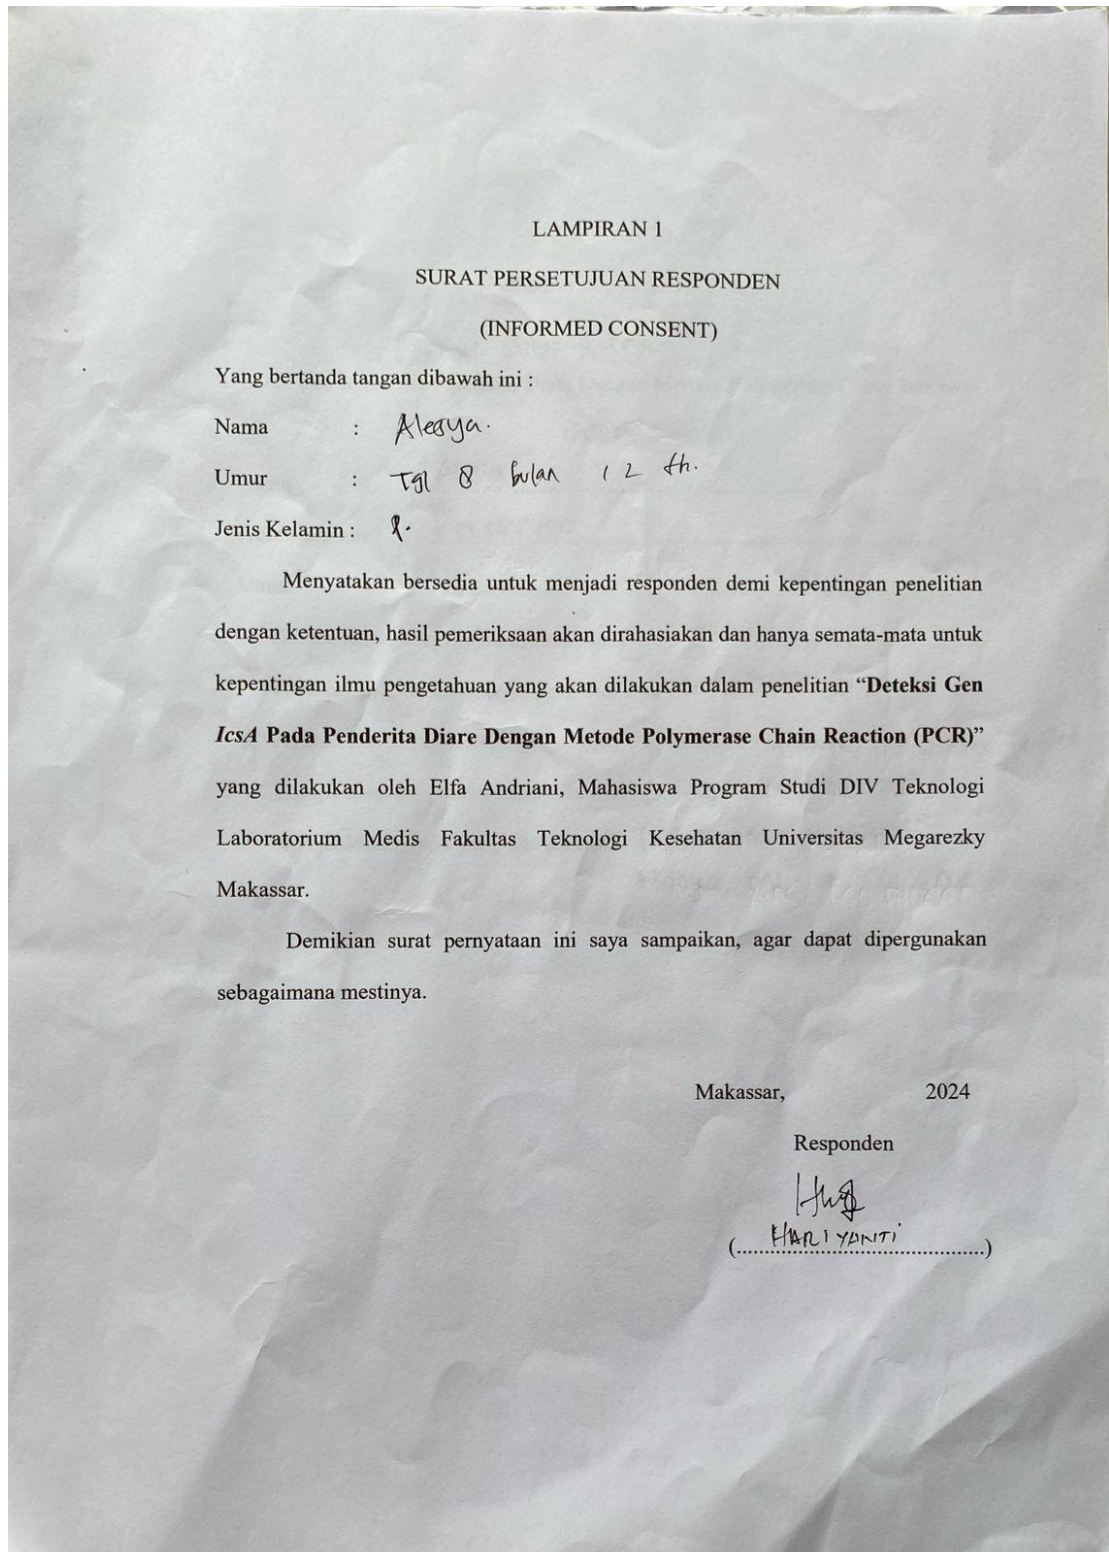 LAMPIRAN 1
SURAT PERSETUJUAN RESPONDEN
(INFORMED CONSENT)
Yang bertanda tangan dibawah ini :
Nama :
Umur : Tgl 8 bulan 12 th.
Jenis Kelamin :
Menyatakan bersedia untuk menjadi responden demi kepentingan penelitian
dengan ketentuan, hasil pemeriksaan akan dirahasiakan dan hanya semata-mata untuk
kepentingan ilmu pengetahuan yang akan dilakukan dalam penelitian “Deteksi Gen
IcsA Pada Penderita Diare Dengan Metode Polymerase Chain Reaction (PCR)”
yang dilakukan oleh Elfa Andriani, Mahasiswa Program Studi DIV Teknologi
Laboratorium Medis Fakultas Teknologi Kesehatan Universitas Megarezky
Makassar.
Demikian surat pernyataan ini saya sampaikan, agar dapat dipergunakan
sebagaimana mestinya.
Makassar, 2024
Responden
(HARIYANTI)